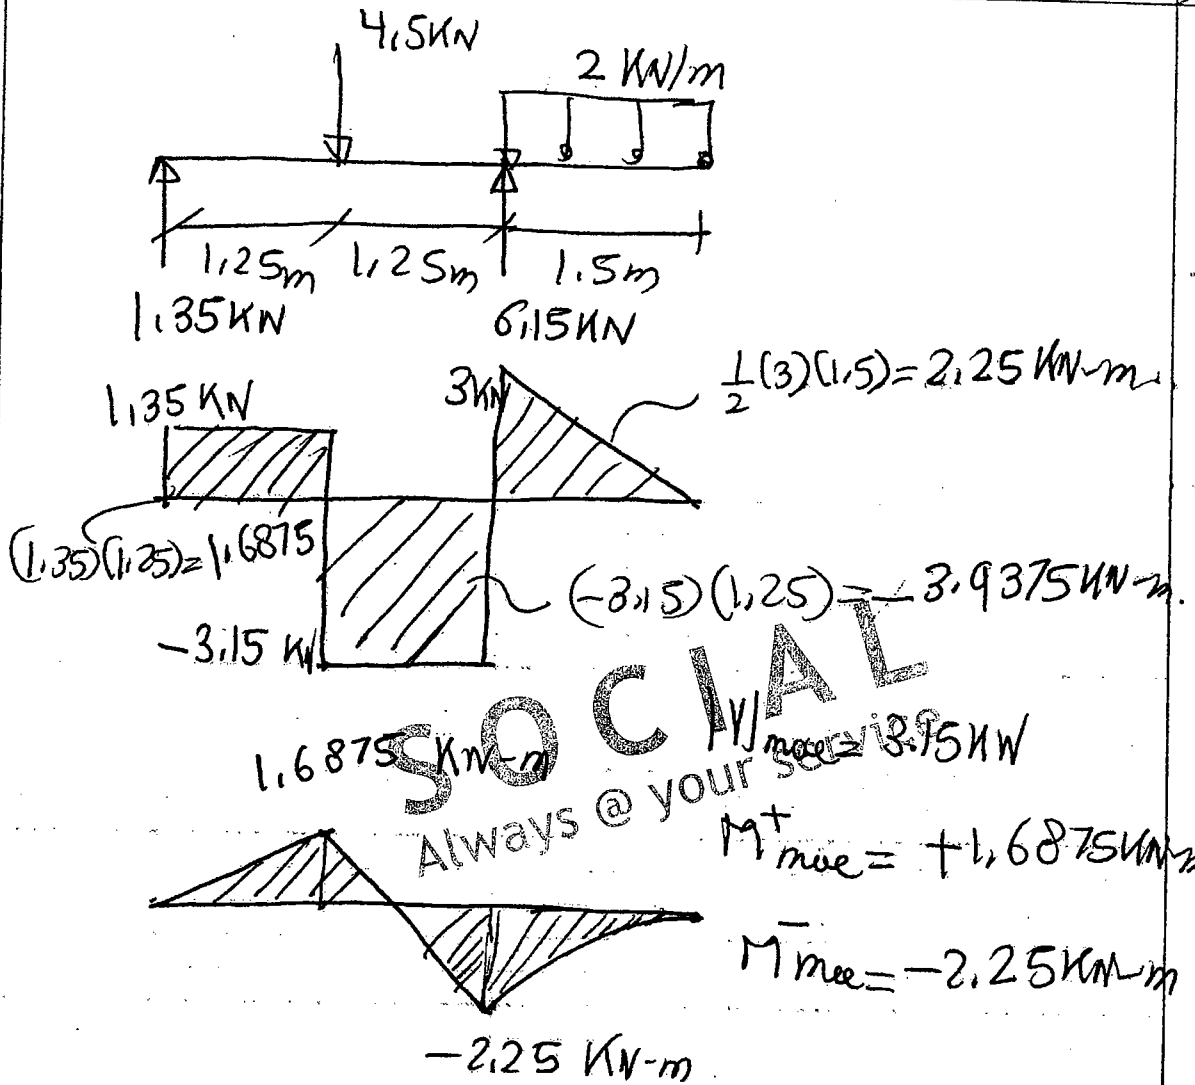 4,5KN
2 KN/m
1,25m 1,25m 1.5m
1,35KN 6,15KN
1,35 KN 3KN 1/2 (3)(1,5)= 2,25 KN-m.
(1,35)(1,25)=1,6875
(-3,15)(1,25)=-3,9375KN-m.
-3,15 KN
SOCIAL
Always @ your service
1,6875 KN-m
|V|max= 3,15KN
M+max= +1,6875KN-m
M-max=-2,25KN-m
-2,25 KN-m